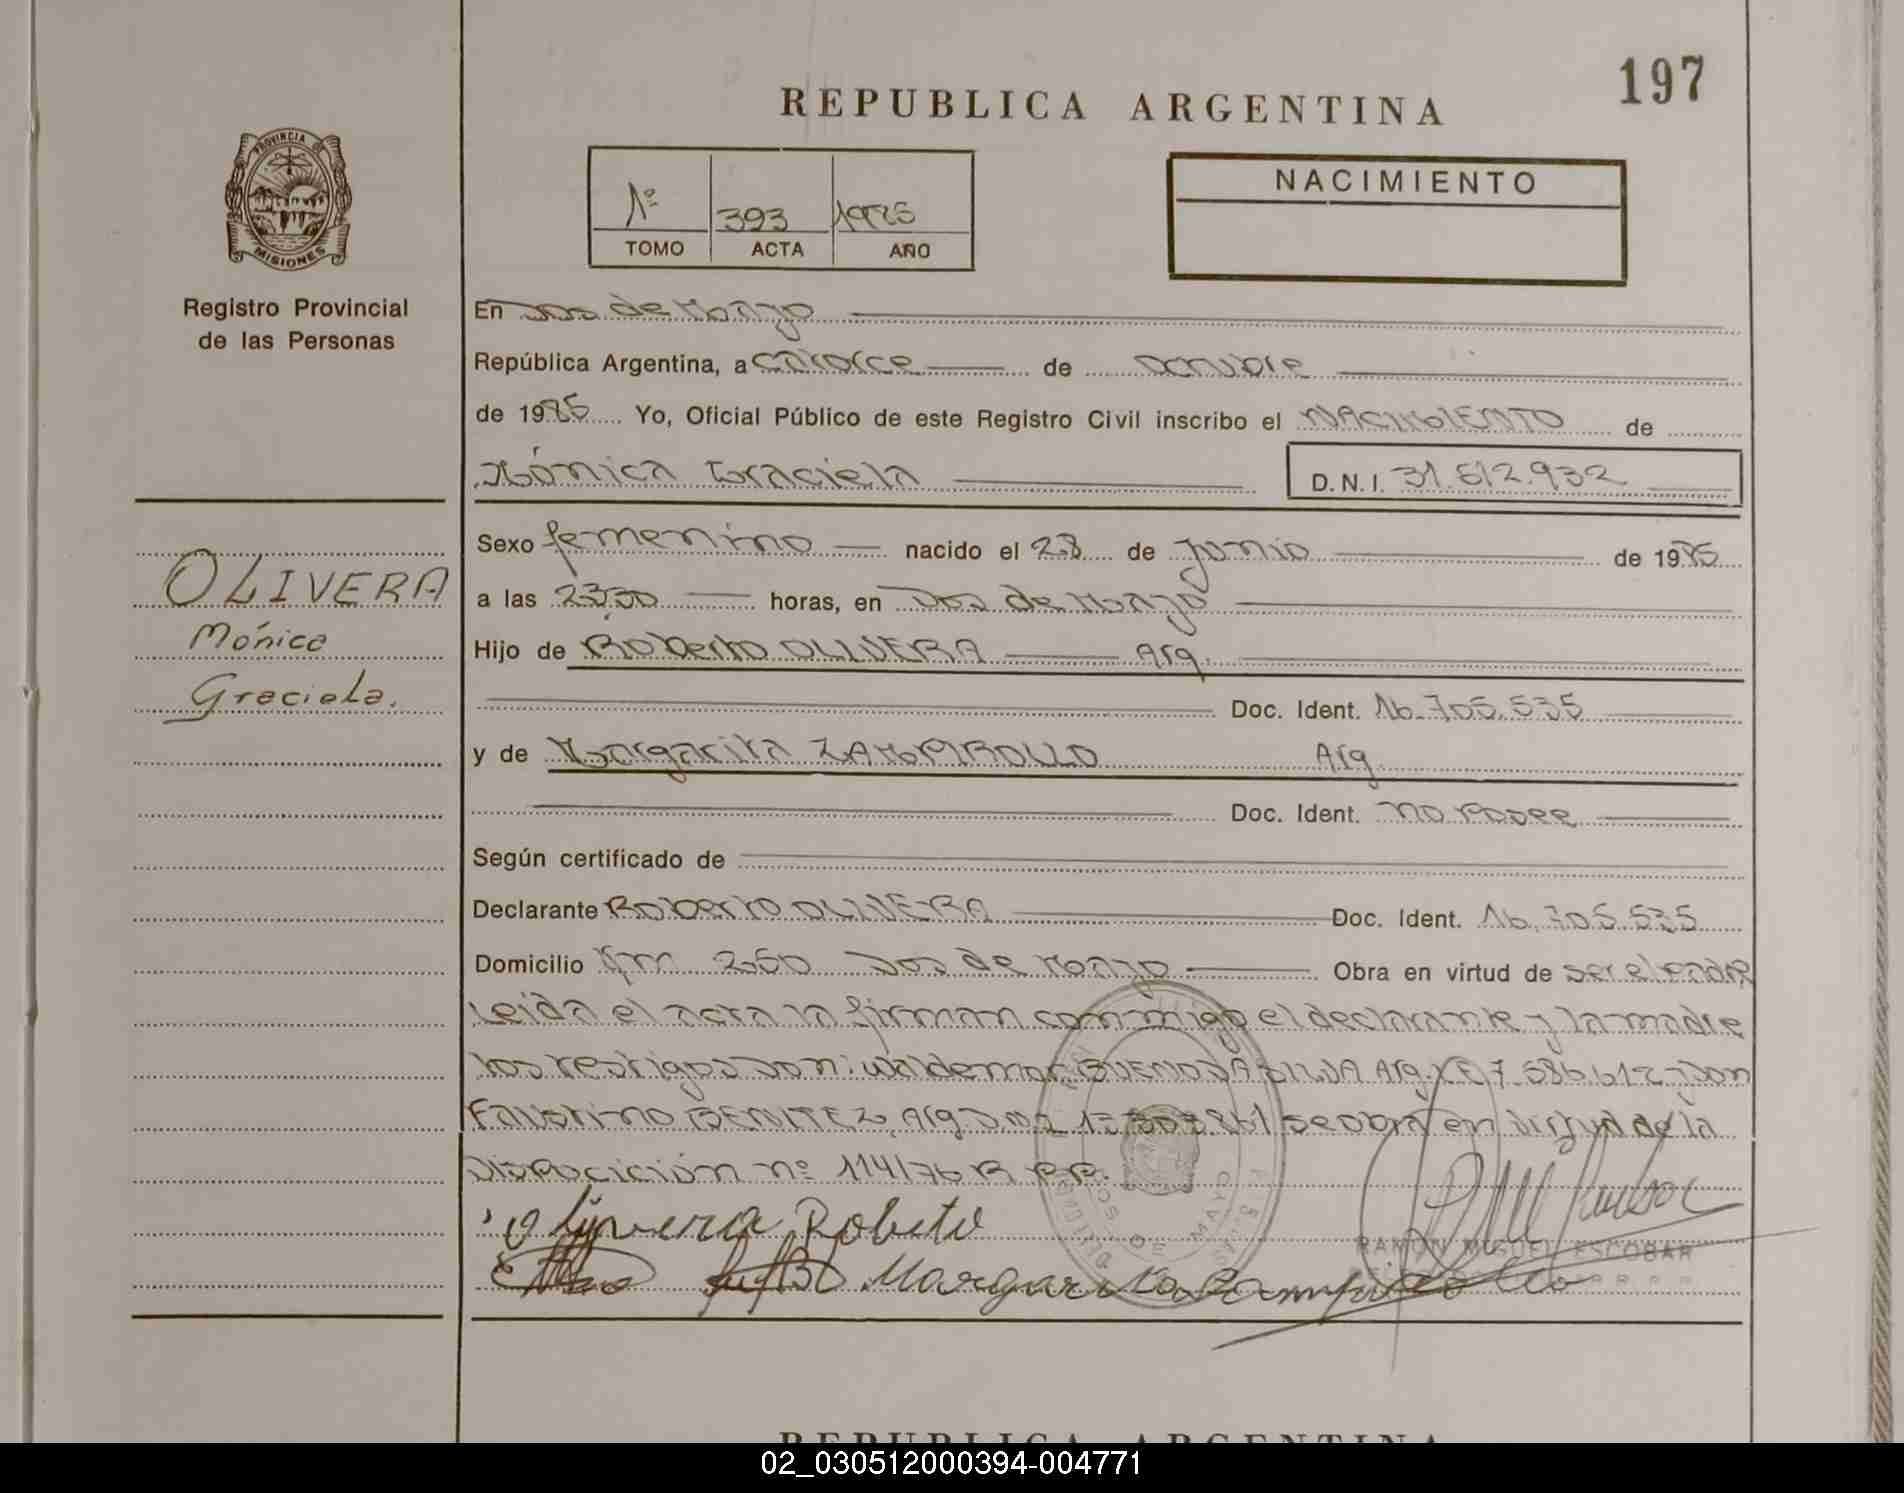 197
REPUBLICA ARGENTINA
PROVINCIA DE
MISIONES
Registro Provincial
de las Personas
1º 393 1985
TOMO ACTA AÑO
NACIMIENTO
En Dos de Mayo
República Argentina, a catorce de octubre
de 1985 Yo, Oficial Público de este Registro Civil inscribo el NACIMIENTO de
Mónica Graciela D.N.I. 31.612.932
OLIVERA
Mónica
Graciela.
Sexo femenino nacido el 28 de junio de 1985
a las 23,30 horas, en Dos de Mayo
Hijo de Roberto OLIVERA Arg.
Doc. Ident. 16.705.535
y de Margarita ZAMPIROLLO Arg
Doc. Ident. no posee
Según certificado de
Declarante Roberto OLIVERA Doc. Ident. 16.705.535
Domicilio Km 250 Dos de Mayo Obra en virtud de ser el padre
Leida el acta la firman conmigo el declarante y la madre
los testigos son: Waldemar DA SILVA Arg LE 7.586.612 y Don
Faustino BENITEZ Arg se obra en virtud de la
Disposición nº 114/76 R.P.P.
Olivera Robeto
Margarita Zampirollo
RAMON MIGUEL ESCOBAR
REPUBLICA ARGENTINA
02_030512000394-004771